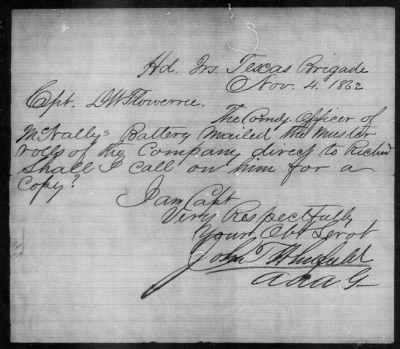 Hd. Qrs. Texas Brigade
Nov. 4. 1862
Capt. D.W. Flowerree.
The Comdg. Officer of
McNally's Battery mailed the Muster
rolls of the Company direct to Richmd
Shall I call on him for a
Copy?
I am Capt
Very Respectfully
Your Obt Servt
John T.
A A A G